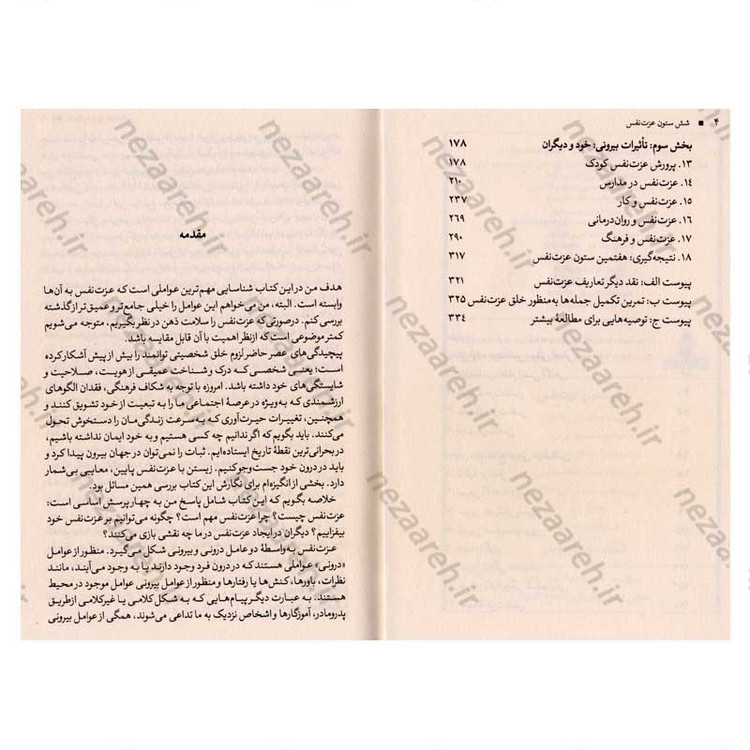 ۴ ■ شش ستون عزت‌نفس
بخش سوم: تأثیرات بیرونی: خود و دیگران ۱۷۸
۱۳. پرورش عزت‌نفس کودک ۱۷۸
۱۴. عزت‌نفس در مدارس ۲۱۰
۱۵. عزت‌نفس و کار ۲۳۷
۱۶. عزت‌نفس و روان‌درمانی ۲۶۹
۱۷. عزت‌نفس و فرهنگ ۲۹۰
۱۸. نتیجه‌گیری: هفتمین ستون عزت‌نفس ۳۱۷
پیوست الف: نقد دیگر تعاریف عزت‌نفس ۳۲۱
پیوست ب: تمرین تکمیل جمله‌ها به‌منظور خلق عزت‌نفس ۳۲۵
پیوست ج: توصیه‌هایی برای مطالعهٔ بیشتر ۳۳۴
مقدمه
هدف من در این کتاب شناسایی مهم‌ترین عواملی است که عزت‌نفس به آن‌ها
وابسته است. البته، من می‌خواهم این عوامل را خیلی جامع‌تر و عمیق‌تر از گذشته
بررسی کنم. درصورتی‌که عزت‌نفس را سلامت ذهن در نظر بگیریم، متوجه می‌شویم
کمتر موضوعی است که ازنظر اهمیت با آن قابل مقایسه باشد.
پیچیدگی‌های عصر حاضر لزوم خلق شخصیتی توانمند را بیش از پیش آشکار کرده
است؛ یعنی شخصی که درک و شناخت عمیقی از هویت، صلاحیت و
شایستگی‌های خود داشته باشد. امروزه با توجه به شکاف فرهنگی، فقدان الگوهای
ارزشمندی که به‌ویژه در عرصهٔ اجتماعی ما را به تبعیت از خود تشویق کنند و
همچنین، تغییرات حیرت‌آوری که به‌سرعت زندگی‌مان را دستخوش تحول
می‌کنند. باید بگویم که اگر ندانیم چه کسی هستیم و به خود ایمان نداشته باشیم،
در بحرانی‌ترین نقطهٔ تاریخ ایستاده‌ایم. ثبات را نمی‌توان در جهان بیرون پیدا کرد و
باید در درون خود جست‌وجو کنیم. زیستن با عزت‌نفس پایین، معایبی بی‌شمار
دارد. بخشی از انگیزه‌ام برای نگارش این کتاب بررسی همین مسائل بود.
خلاصه بگویم که این کتاب شامل پاسخ من به چهار پرسش اساسی است:
عزت‌نفس چیست؟ چرا عزت‌نفس مهم است؟ چگونه می‌توانیم بر عزت‌نفس خود
بیفزاییم؟ دیگران در ایجاد عزت‌نفس در ما چه نقشی بازی می‌کنند؟
عزت‌نفس به‌واسطهٔ دو عامل درونی و بیرونی شکل می‌گیرد. منظور از عوامل
«درونی» عواملی هستند که در درون فرد وجود دارند یا به وجود می‌آیند، مانند
نظرات، باورها، کنش‌ها یا رفتارها و منظور از عوامل بیرونی عوامل موجود در محیط
هستند. به عبارت دیگر پیام‌هایی که به شکل کلامی یا غیرکلامی ازطریق
پدرومادر، آموزگارها و اشخاص نزدیک به ما تداعی می‌شوند، همگی از عوامل بیرونی
nezaareh.ir
nezaareh.ir
nezaareh.ir
nezaareh.ir
nezaareh.ir
nezaareh.ir